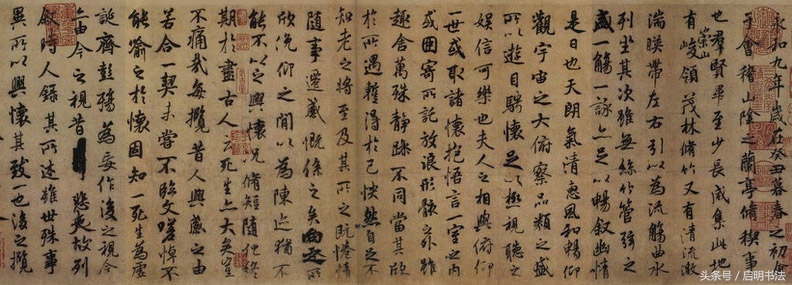 永和九年歲在癸丑暮春之初會
于會稽山陰之蘭亭脩稧事
也群賢畢至少長咸集此地
有崇山峻領茂林脩竹又有清流激
湍暎帶左右引以為流觴曲水
列坐其次雖無絲竹管弦之
盛一觴一詠亦足以暢敘幽情
是日也天朗氣清惠風和暢仰
觀宇宙之大俯察品類之盛
所以遊目騁懷足以極視聽之
娛信可樂也夫人之相與俯仰
一世或取諸懷抱悟言一室之內
或因寄所託放浪形骸之外雖
趣舍萬殊靜躁不同當其欣
於所遇蹔得於己怏然自足不
知老之將至及其所之既惓情
隨事遷感慨係之矣向之所
欣俛仰之間以為陳迹猶不
能不以之興懷況脩短隨化終
期於盡古人云死生亦大矣豈
不痛哉每攬昔人興感之由
若合一契未嘗不臨文嗟悼不
能喻之於懷固知一死生為虛
誕齊彭殤為妄作後之視今
亦由今之視昔悲夫故列
敘時人錄其所述雖世殊事
異所以興懷其致一也後之攬
头条号 / 启明书法